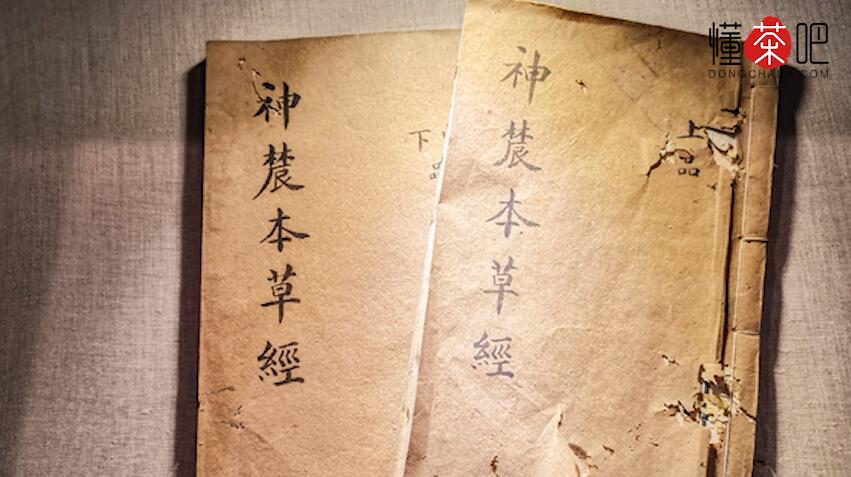 懂茶吧
DONGCHABA.COM
上品
神農本草經
下
神農本草經